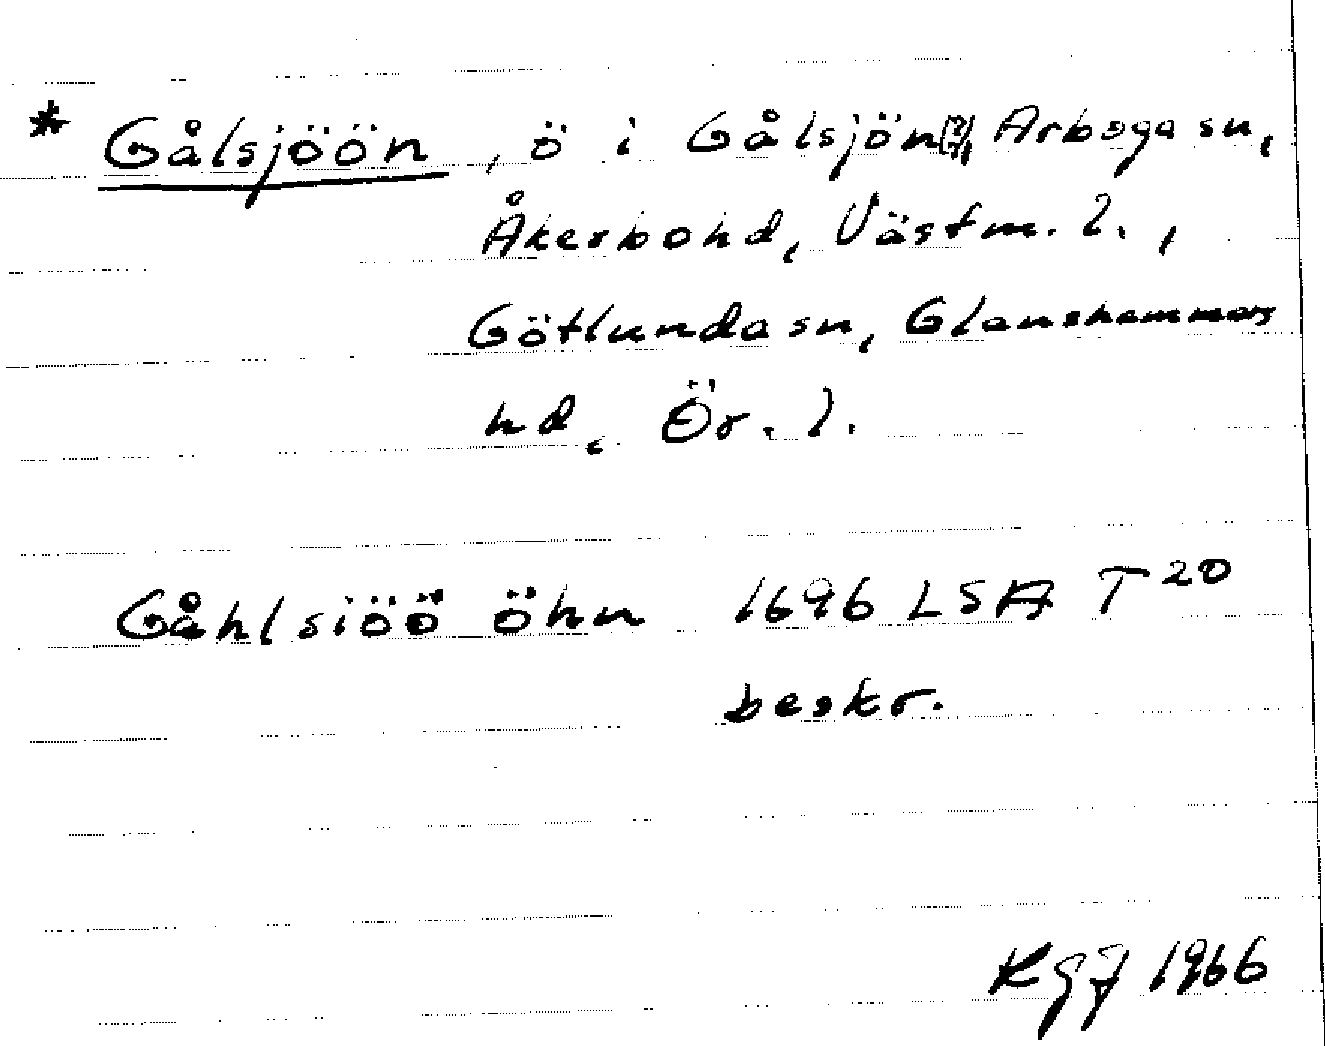 * Gålsjöön, ö i Gålsjön[?], Arboga sn,
Åkerbo hd, Västm. l.,
Götlunda sn, Glanshammars
hd, Ör. l.
Gåhlsiöö öhn 1696 LSA T 20
beskr.
KgJ 1966